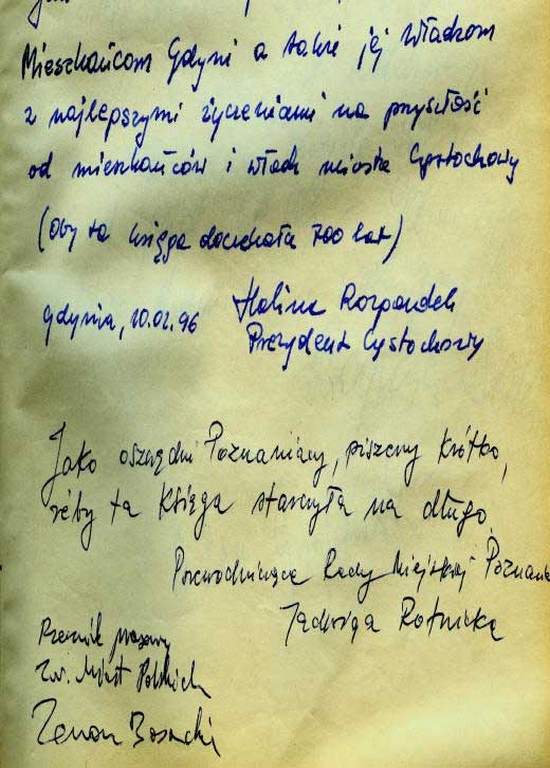 Mieszkańcom Gdyni a także jej Władzom
z najlepszymi życzeniami na przyszłość
od mieszkańców i władz miasta Częstochowy
(oby ta księga doczekała 700 lat)
Gdynia, 10.02.96 Halina Rozpondek
Prezydent Częstochowy
Jako oszczędni Poznaniacy, piszemy krótko,
żeby ta Księga starczyła na długo.
Przewodnicząca Rady Miejskiej Poznania
Jadwiga Rotnicka
Rzecznik prasowy
Zw. Miast Polskich
Zenon Bosacki